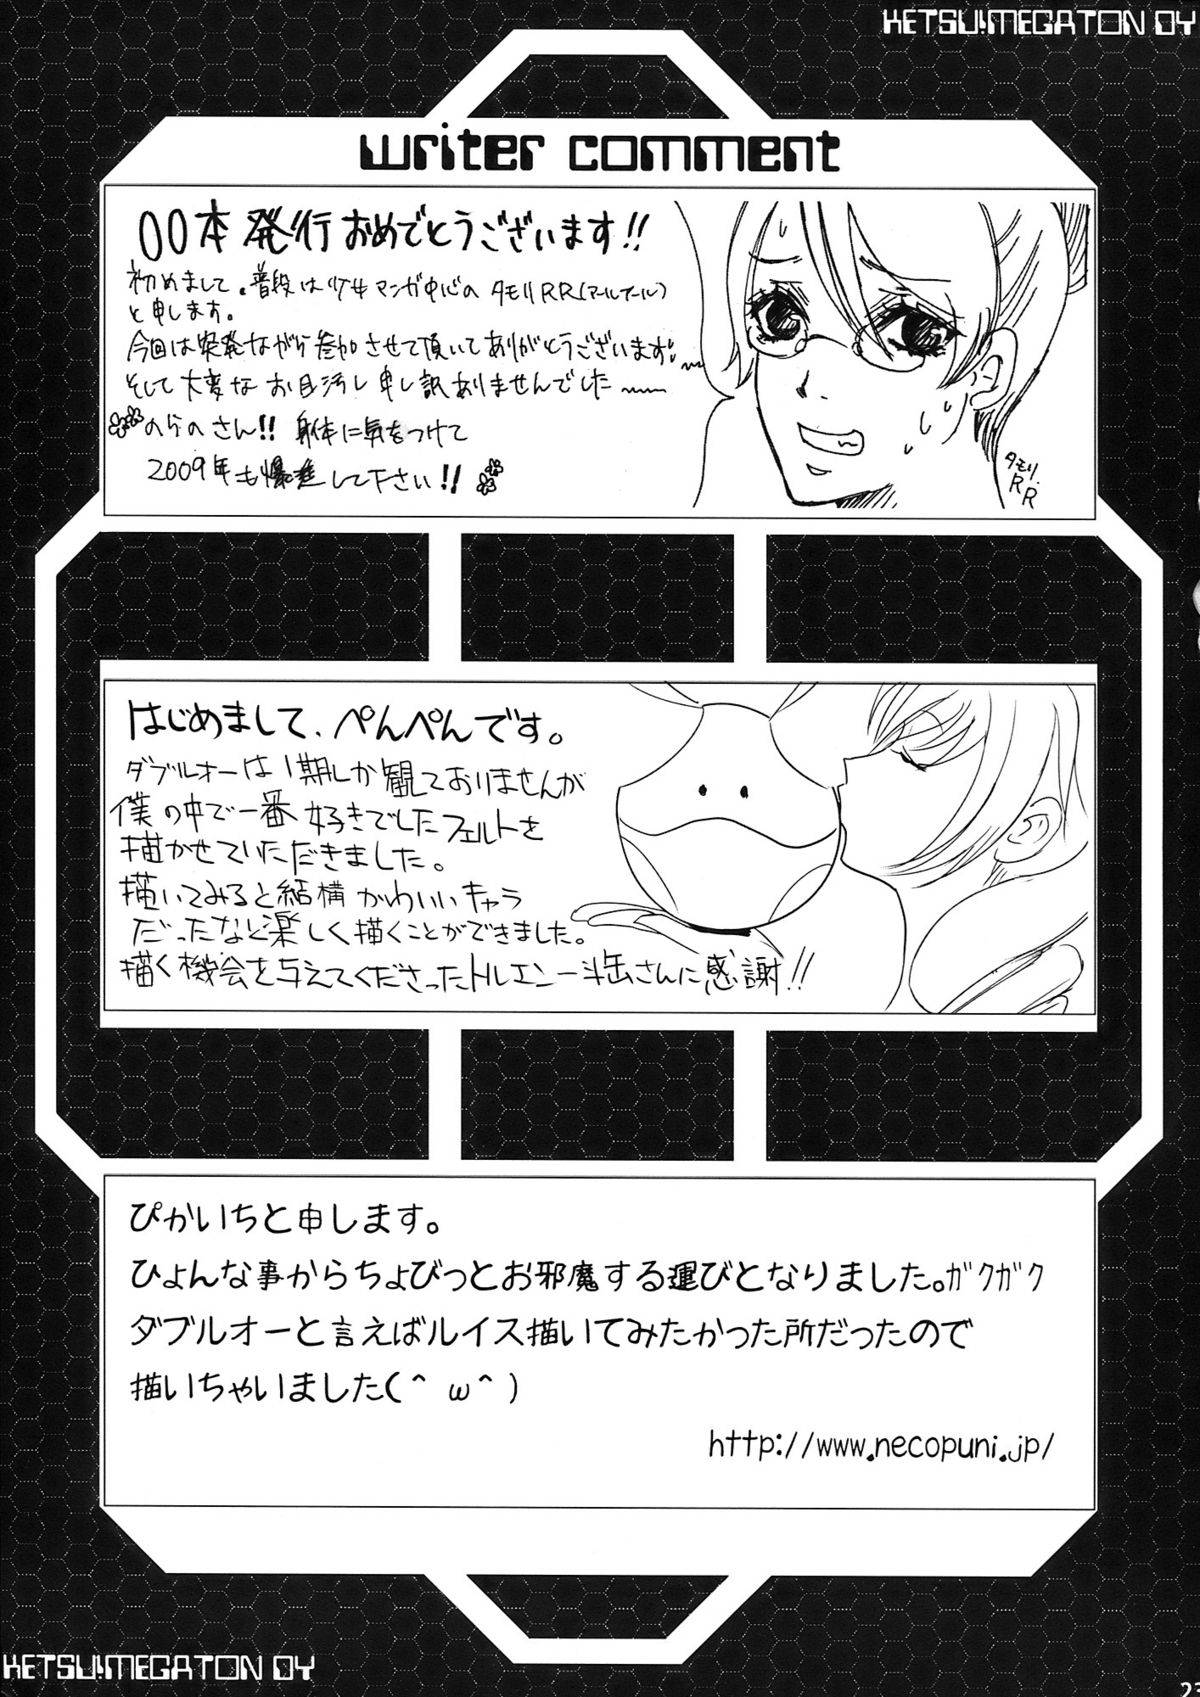 KETSU!MEGATON OY
writer comment
00本発行おめでとうございます!!
初めまして。普段は少女マンガ中心のタモリRR(アールアール)
と申します。
今回は突発ながら参加させて頂いてありがとうございます。
そして大変なお目汚し申し訳ありませんでした〜
のらのさん!! 身体に気をつけて
2009年も爆進して下さい!!
タモリ
RR
はじめまして、ぺんぺんです。
ダブルオーは1期しか観ておりませんが
僕の中で一番好きでしたフェルトを
描かせていただきました。
描いてみると結構かわいいキャラ
だったなと楽しく描くことができました。
描く機会を与えてくださったトルエン一斗缶さんに感謝!!
ぴかいちと申します。
ひょんな事からちょびっとお邪魔する運びとなりました。ガクガク
ダブルオーと言えばルイス描いてみたかった所だったので
描いちゃいました(^ω^)
http://www.necopuni.jp/
KETSU!MEGATON OY
23